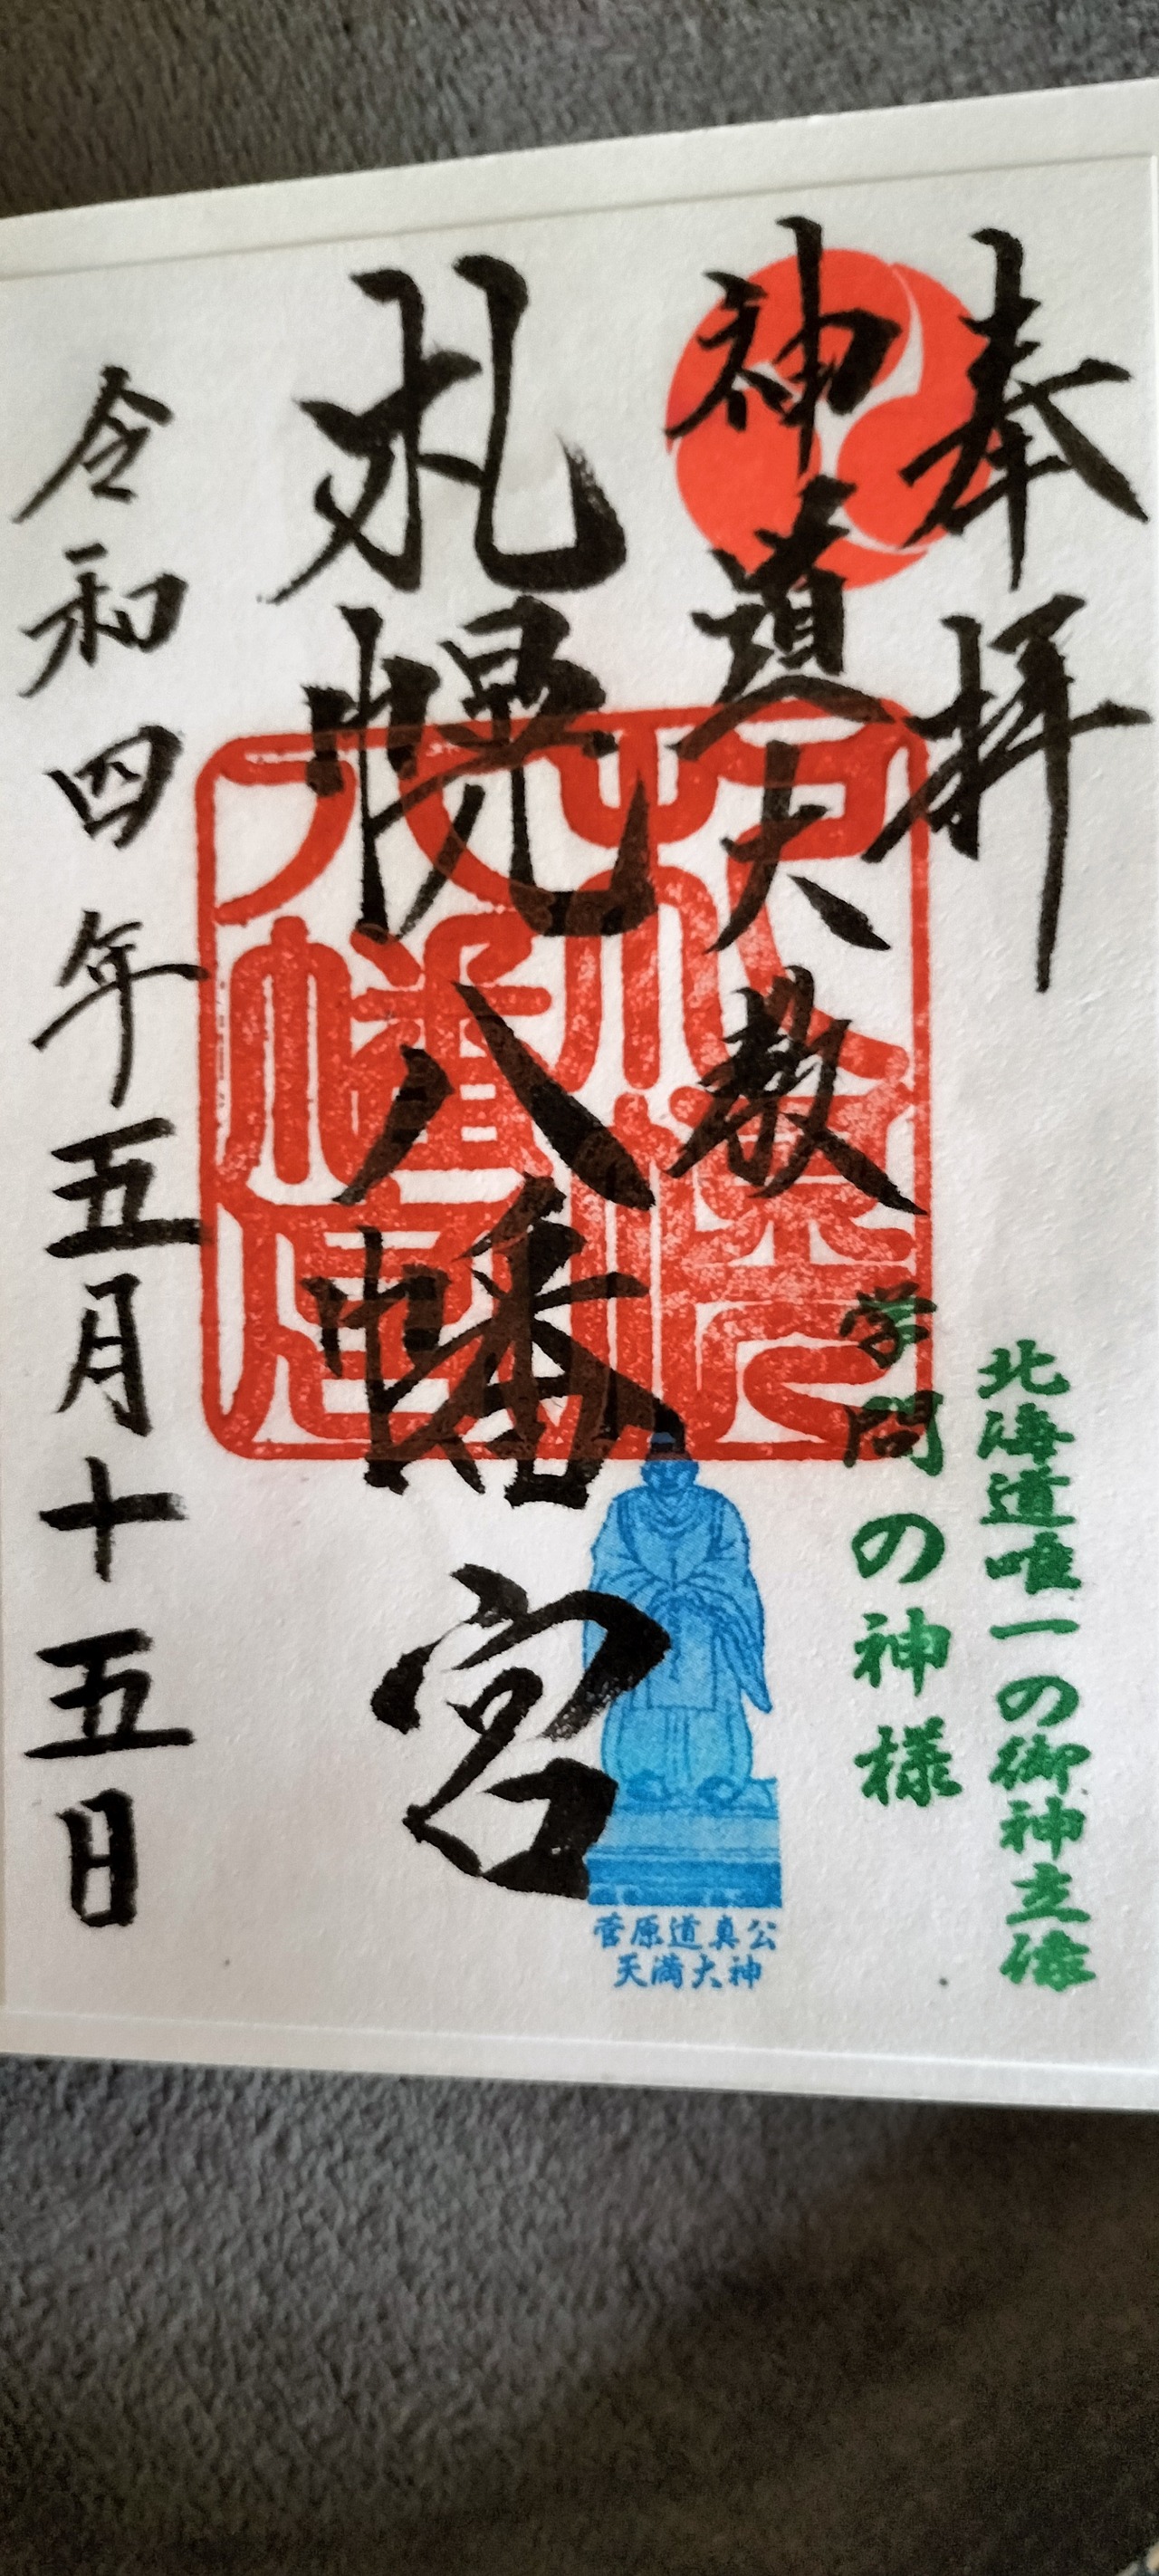 奉拝
神道大教
北海道唯一の御神立像
学問の神様
札幌八幡宮
菅原道真公
天満大神
令和四年五月十五日